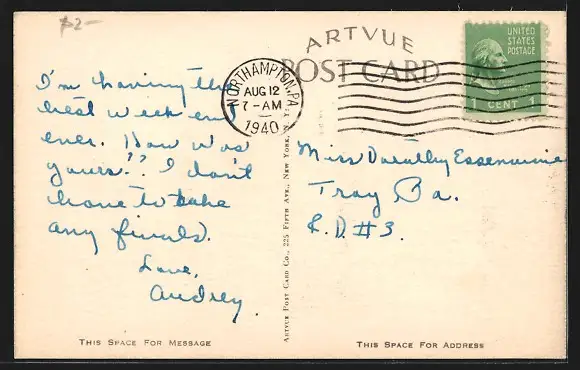 $2-
ARTVUE
POST CARD
NORTHAMPTON, PA.
AUG 12
7-AM
1940
UNITED
STATES
POSTAGE
1 CENT 1
I'm having the
best week end
ever. How was
yours?? I don't
have to take
any finals.
Love,
Audrey.
Miss Dorothy Essenwine
Troy Pa.
R.D. #3.
ARTVUE POST CARD CO., 225 FIFTH AVE., NEW YORK, N. Y.
THIS SPACE FOR MESSAGE
THIS SPACE FOR ADDRESS